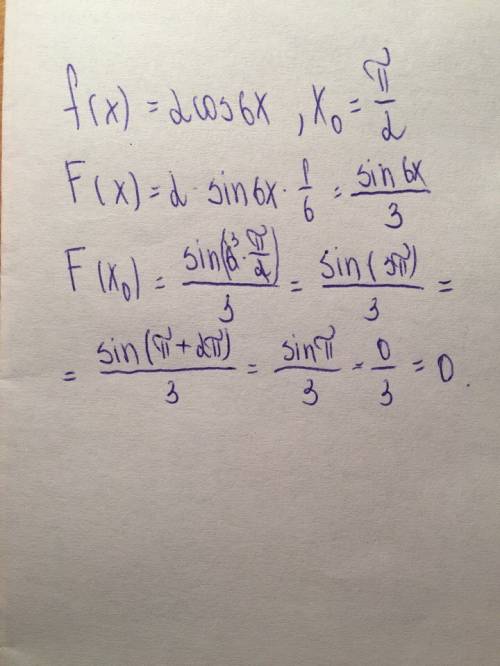 f(x) = 2cos6x, x₀ = π/2
F(x) = 2 · sin6x · 1/6 = sin6x/3
F(x₀) = sin(6³ · π/2)/3 = sin(3π)/3 =
= sin(π + 2π)/3 = sinπ/3 = 0/3 = 0.